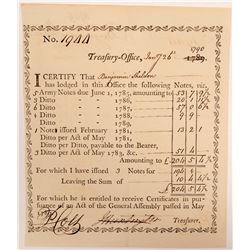 No. 1944
1790
Treasury-Office, Jany 26th 1789.
I CERTIFY That Benjamin Sheldon
has lodged in this Office the following Notes, viz.
5 Army Notes due June 1, 1785, amounting to 53 7 4½
Ditto 1786, 20 1 6½
Ditto 1787, 57 7
Ditto 1788, 9 9
Ditto 1789,
1 Notes issued February 1781, 13 2 1
Ditto per Act of May 1781,
Ditto per Ditto, payable to the Bearer,
Ditto per Act of May 1783, &c.
Amounting to £ 204 5 4½
For which I have issued 3 Notes for
Leaving the Sum of £ 204 5 4½
For which he is entitled to receive Certificates in
pursuance of an Act of the General Assembly passed in May
Treasurer.